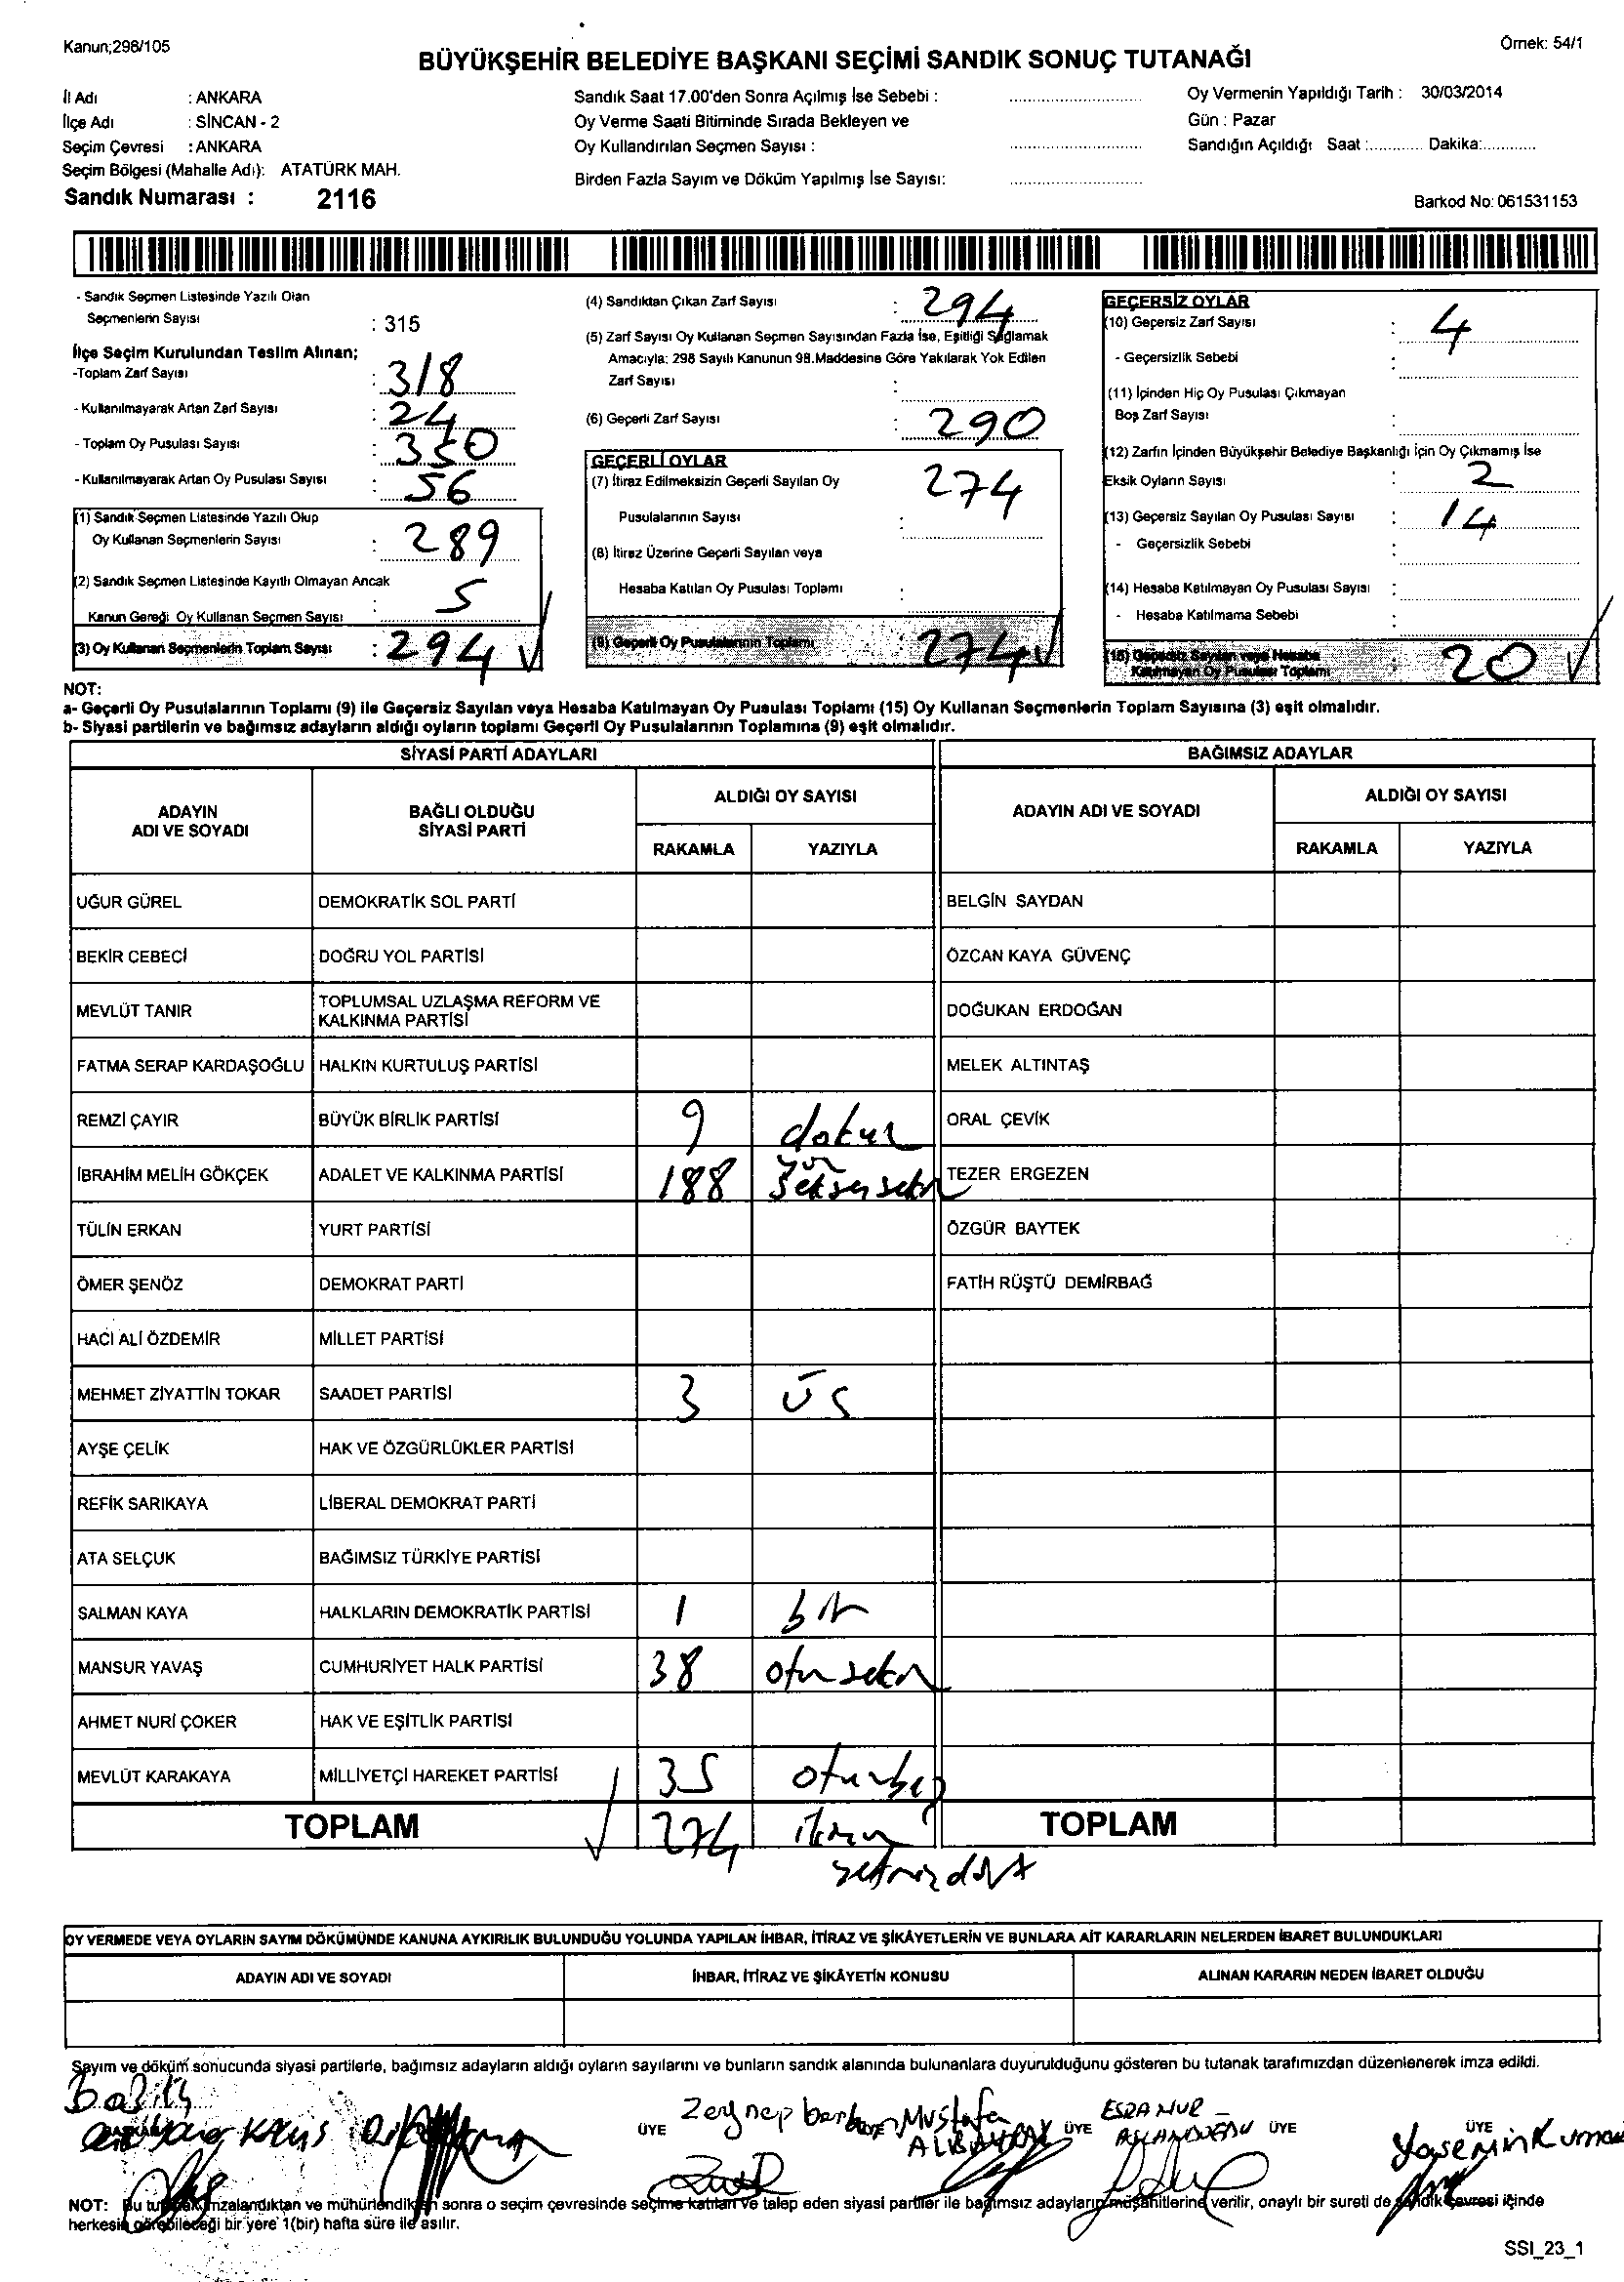 Kanun;298/105
Örnek: 54/1
BÜYÜKŞEHİR BELEDİYE BAŞKANI SEÇİMİ SANDIK SONUÇ TUTANAĞI
İl Adı : ANKARA
İlçe Adı : SİNCAN - 2
Seçim Çevresi : ANKARA
Seçim Bölgesi (Mahalle Adı): ATATÜRK MAH.
Sandık Numarası : 2116
Sandık Saat 17.00'den Sonra Açılmış İse Sebebi :
Oy Verme Saati Bitiminde Sırada Bekleyen ve
Oy Kullandırılan Seçmen Sayısı :
Birden Fazla Sayım ve Döküm Yapılmış İse Sayısı:
Oy Vermenin Yapıldığı Tarih : 30/03/2014
Gün : Pazar
Sandığın Açıldığı Saat :............ Dakika:............
Barkod No: 061531153
- Sandık Seçmen Listesinde Yazılı Olan
Seçmenlerin Sayısı : 315
İlçe Seçim Kurulundan Teslim Alınan;
-Toplam Zarf Sayısı : 318
- Kullanılmayarak Artan Zarf Sayısı : 24
- Toplam Oy Pusulası Sayısı : 350
- Kullanılmayarak Artan Oy Pusulası Sayısı : 56
(1) Sandık Seçmen Listesinde Yazılı Olup
Oy Kullanan Seçmenlerin Sayısı : 289
(2) Sandık Seçmen Listesinde Kayıtlı Olmayan Ancak
Kanun Gereği Oy Kullanan Seçmen Sayısı : 5
(3) Oy Kullanan Seçmenlerin Toplam Sayısı : 294
(4) Sandıktan Çıkan Zarf Sayısı : 294
(5) Zarf Sayısı Oy Kullanan Seçmen Sayısından Fazla İse, Eşitliği Sağlamak
Amacıyla; 298 Sayılı Kanunun 98.Maddesine Göre Yakılarak Yok Edilen
Zarf Sayısı :
(6) Geçerli Zarf Sayısı : 290
GEÇERLİ OYLAR
(7) İtiraz Edilmeksizin Geçerli Sayılan Oy 274
Pusulalarının Sayısı :
(8) İtiraz Üzerine Geçerli Sayılan veya
Hesaba Katılan Oy Pusulası Toplamı :
(9) Geçerli Oy Pusulalarının Toplamı : 274
GEÇERSİZ OYLAR
(10) Geçersiz Zarf Sayısı : 4
- Geçersizlik Sebebi :
(11) İçinden Hiç Oy Pusulası Çıkmayan
Boş Zarf Sayısı :
(12) Zarfın İçinden Büyükşehir Belediye Başkanlığı İçin Oy Çıkmamış İse
Eksik Oyların Sayısı : 2
(13) Geçersiz Sayılan Oy Pusulası Sayısı : 14
- Geçersizlik Sebebi :
(14) Hesaba Katılmayan Oy Pusulası Sayısı :
- Hesaba Katılmama Sebebi :
(15) Geçersiz Sayılan veya Hesaba
Katılmayan Oy Pusulası Toplamı : 20
NOT:
a- Geçerli Oy Pusulalarının Toplamı (9) ile Geçersiz Sayılan veya Hesaba Katılmayan Oy Pusulası Toplamı (15) Oy Kullanan Seçmenlerin Toplam Sayısına (3) eşit olmalıdır.
b- Siyasi partilerin ve bağımsız adayların aldığı oyların toplamı Geçerli Oy Pusulalarının Toplamına (9) eşit olmalıdır.
SİYASİ PARTİ ADAYLARI BAĞIMSIZ ADAYLAR
ADAYIN ADI VE SOYADI BAĞLI OLDUĞU SİYASİ PARTİ ALDIĞI OY SAYISI ADAYIN ADI VE SOYADI ALDIĞI OY SAYISI
RAKAMLA YAZIYLA RAKAMLA YAZIYLA
UĞUR GÜREL DEMOKRATİK SOL PARTİ BELGİN SAYDAN
BEKİR CEBECİ DOĞRU YOL PARTİSİ ÖZCAN KAYA GÜVENÇ
MEVLÜT TANIR TOPLUMSAL UZLAŞMA REFORM VE KALKINMA PARTİSİ DOĞUKAN ERDOĞAN
FATMA SERAP KARDAŞOĞLU HALKIN KURTULUŞ PARTİSİ MELEK ALTINTAŞ
REMZİ ÇAYIR BÜYÜK BİRLİK PARTİSİ 9 dokuz ORAL ÇEVİK
İBRAHİM MELİH GÖKÇEK ADALET VE KALKINMA PARTİSİ 188 yüz seksen sekiz TEZER ERGEZEN
TÜLİN ERKAN YURT PARTİSİ ÖZGÜR BAYTEK
ÖMER ŞENÖZ DEMOKRAT PARTİ FATİH RÜŞTÜ DEMİRBAĞ
HACI ALİ ÖZDEMİR MİLLET PARTİSİ
MEHMET ZİYATTİN TOKAR SAADET PARTİSİ 3 üç
AYŞE ÇELİK HAK VE ÖZGÜRLÜKLER PARTİSİ
REFİK SARIKAYA LİBERAL DEMOKRAT PARTİ
ATA SELÇUK BAĞIMSIZ TÜRKİYE PARTİSİ
SALMAN KAYA HALKLARIN DEMOKRATİK PARTİSİ 1 bir
MANSUR YAVAŞ CUMHURİYET HALK PARTİSİ 38 otuz sekiz
AHMET NURİ ÇOKER HAK VE EŞİTLİK PARTİSİ
MEVLÜT KARAKAYA MİLLİYETÇİ HAREKET PARTİSİ 35 otuzbeş
TOPLAM 274 TOPLAM
OY VERMEDE VEYA OYLARIN SAYIM DÖKÜMÜNDE KANUNA AYKIRILIK BULUNDUĞU YOLUNDA YAPILAN İHBAR, İTİRAZ VE ŞİKÂYETLERİN VE BUNLARA AİT KARARLARIN NELERDEN İBARET BULUNDUKLARI
ADAYIN ADI VE SOYADI İHBAR, İTİRAZ VE ŞİKÂYETİN KONUSU ALINAN KARARIN NEDEN İBARET OLDUĞU
Sayım ve döküm sonucunda siyasi partilerle, bağımsız adayların aldığı oyların sayılarını ve bunların sandık alanında bulunanlara duyurulduğunu gösteren bu tutanak tarafımızdan düzenlenerek imza edildi.
ÜYE Zeynep Mustafa ÜYE ESRA NUR ÜYE ÜYE
Yasemin
NOT: Bu tutanak imzalandıktan ve mühürlendikten sonra o seçim çevresinde seçime katılan ve talep eden siyasi partiler ile bağımsız adayların müşahitlerine verilir, onaylı bir sureti de sandık çevresi içinde
herkesin görebileceği bir yere 1(bir) hafta süre ile asılır.
SSI_23_1